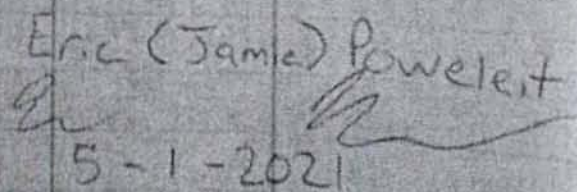 Eric (Jamie) Poweleit
5-1-2021